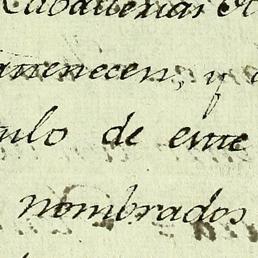 Caballerias
artenecen, y
ulo de este
nombrados